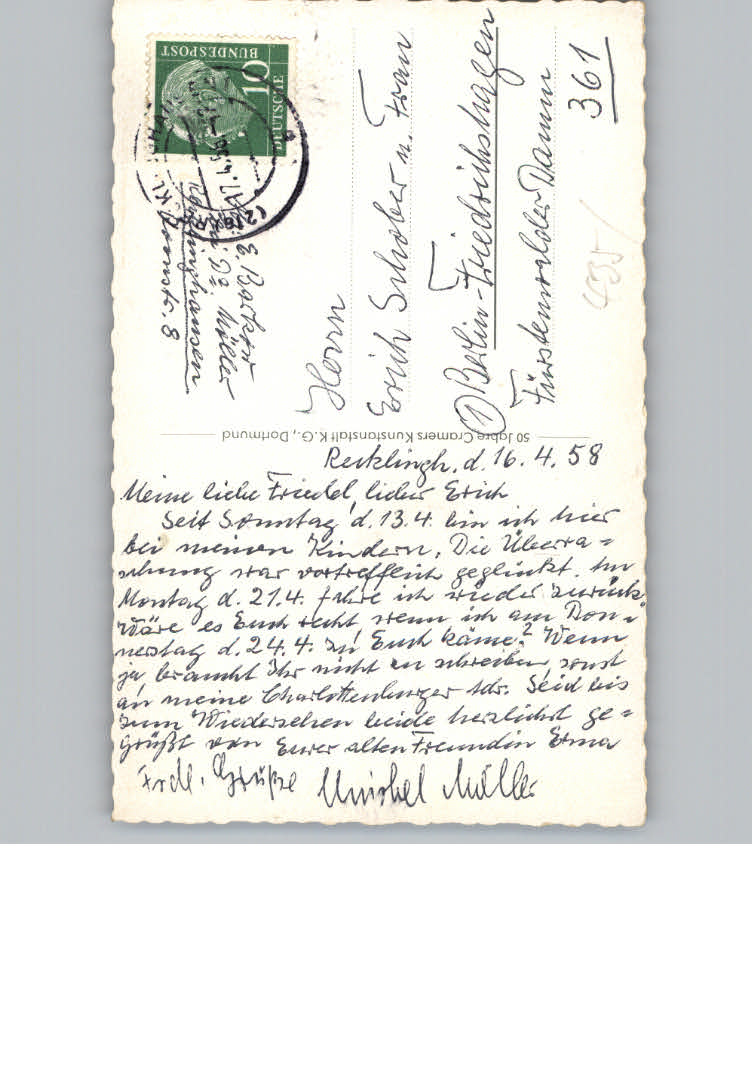 DEUTSCHE
BUNDESPOST
10
E. Barkow
Dr. Müller
Recklinghausen
Roonstr. 8
Herrn
Erich Schober u. Frau
① Berlin-Friedrichshagen
Fürstenwalder Damm
361
435/
50 Jahre Cramers Kunstanstalt K.G., Dortmund
Recklingh. d. 16. 4. 58
Meine liebe Friedel, lieber Erich
Seit Sonntag d. 13.4. bin ich hier
bei meinen Kindern. Die Überra=
schung war vortrefflich geglückt. Am
Montag d. 21.4. fahre ich wieder zurück.
Wäre es Euch recht wenn ich am Don=
nerstag d. 24.4. zu Euch käme? Wenn
ja, braucht Ihr nicht zu schreiben, sonst
an meine Charlottenburger Adr. Seid bis
zum Wiedersehen beide herzlichst ge=
grüßt von Eurer alten Freundin Erna
Frdl. Grüße Müller